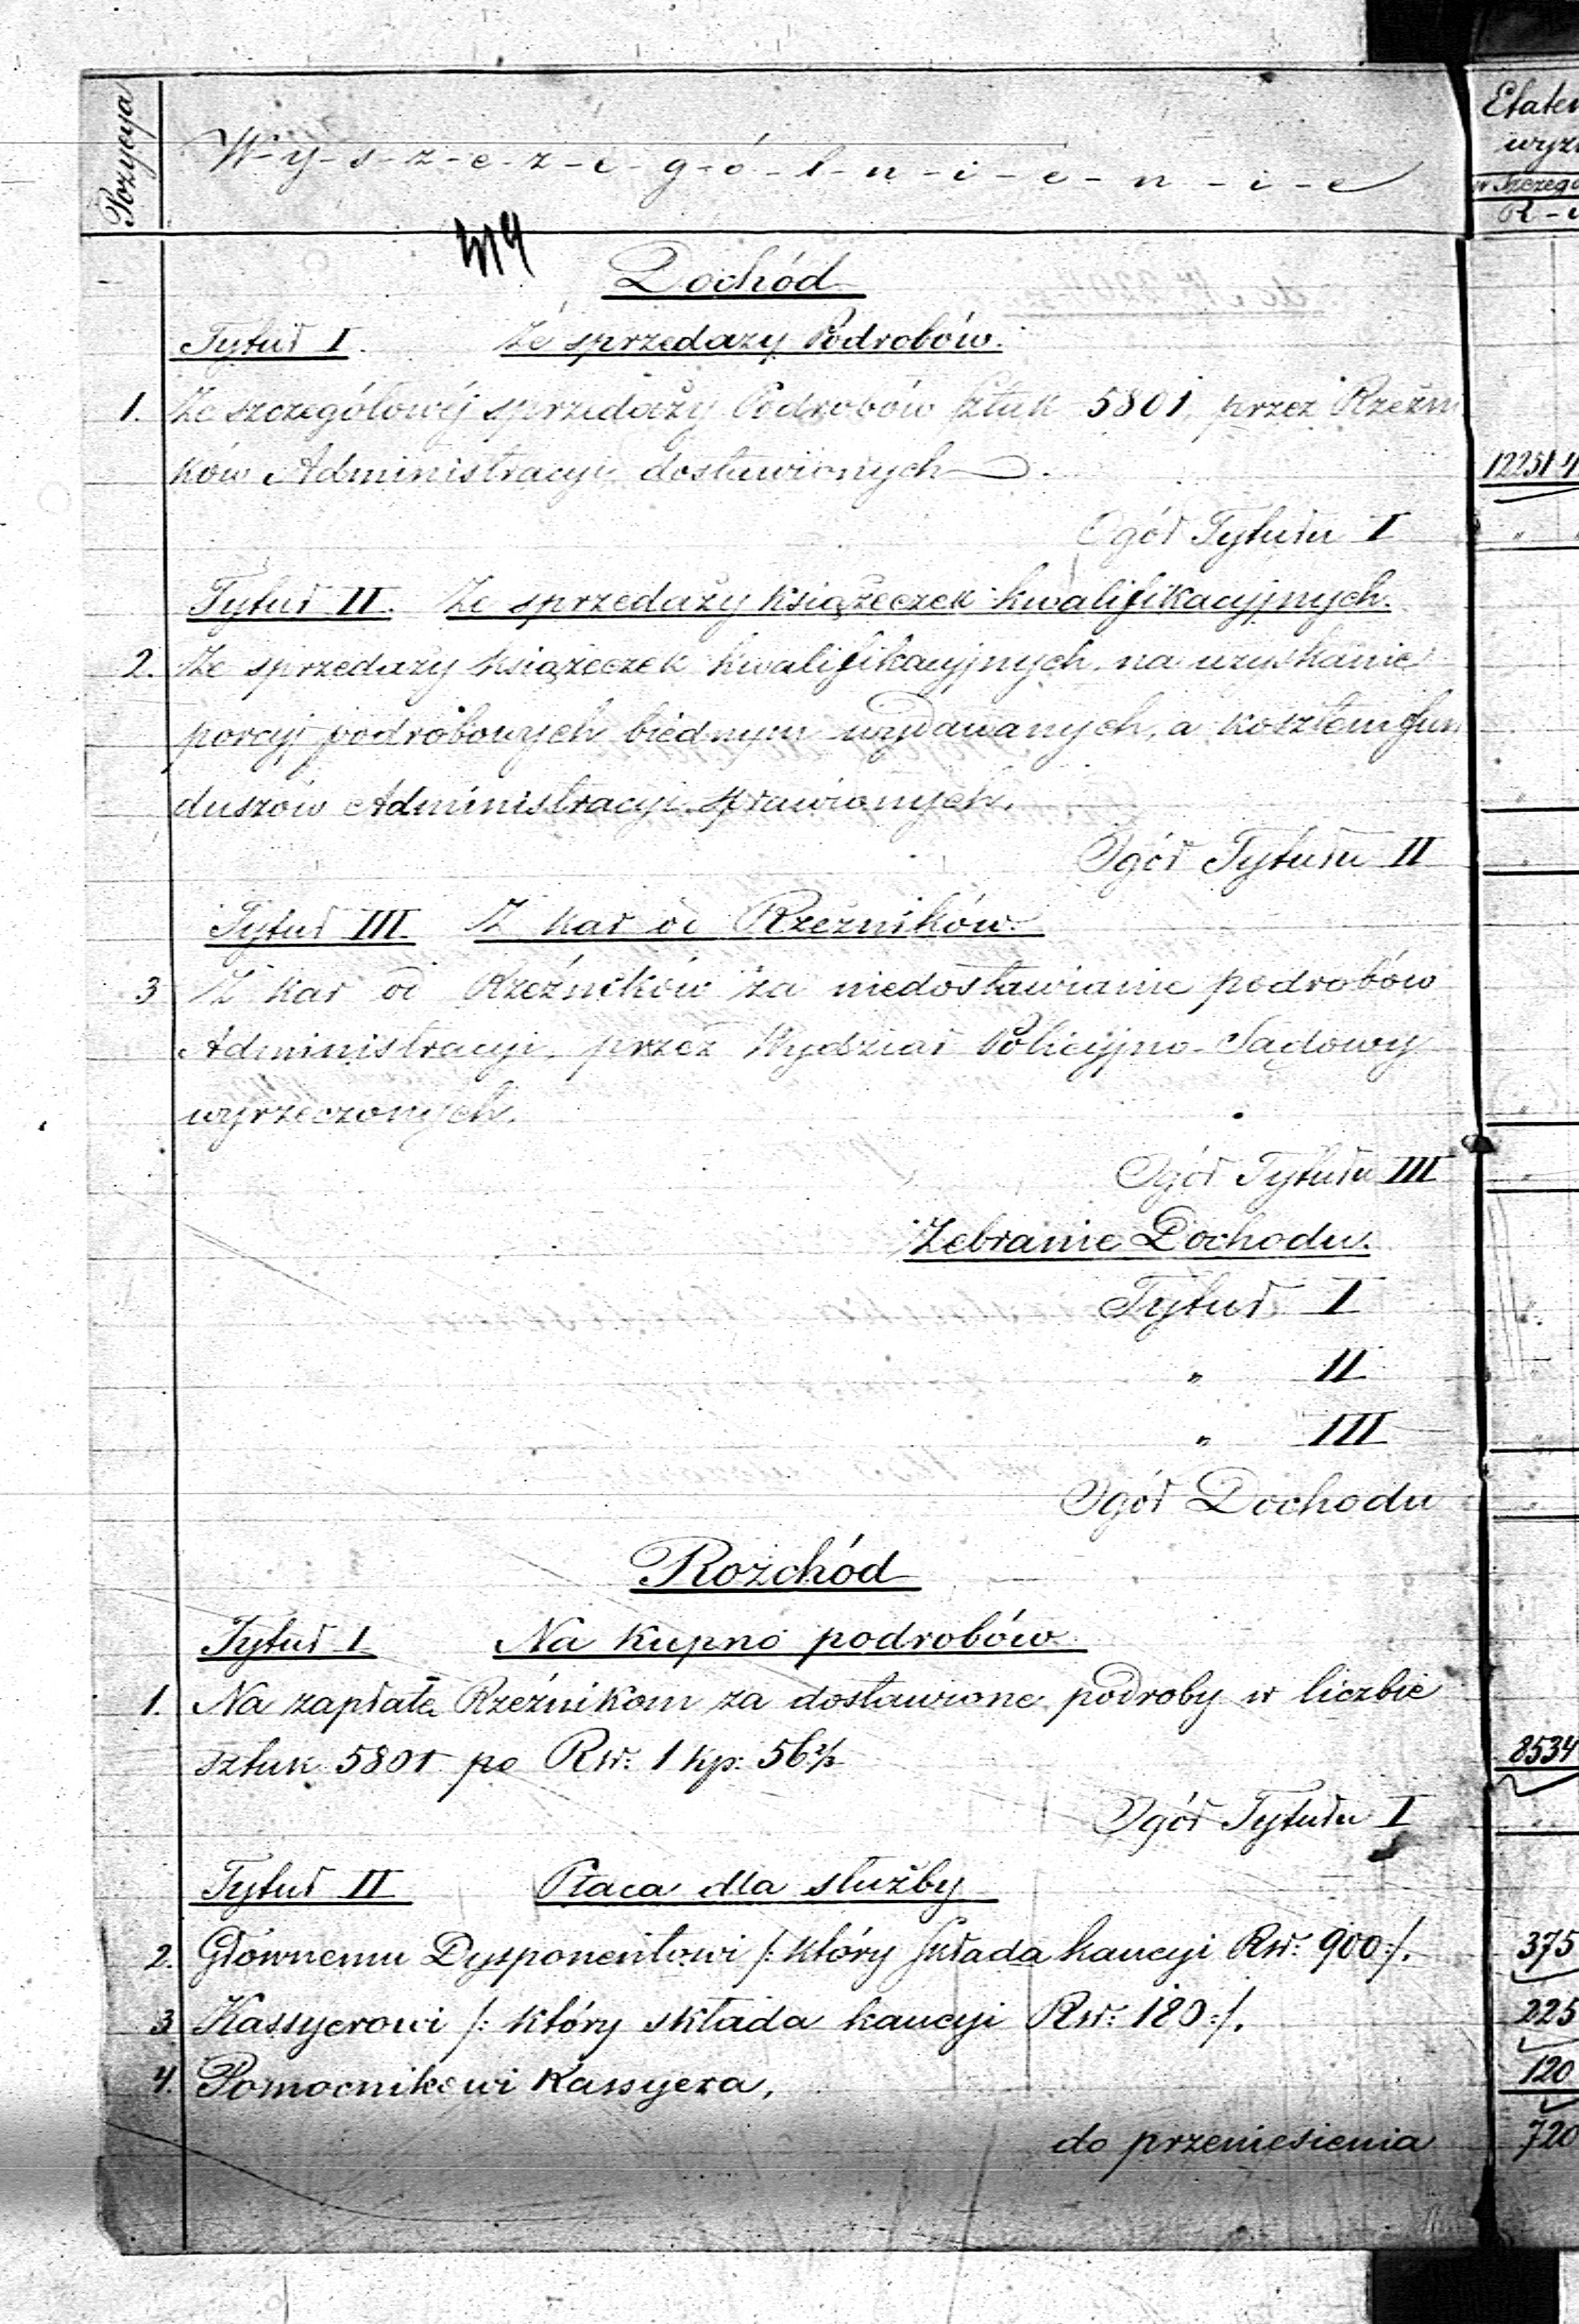 Pozycya
W-y-s-z-c-z-e-g-ó-l-n-i-e-n-i-e
Etatem
w szczegó
R-
Dochód
Tytuł I. Ze sprzedaży Podrobów.
1. Ze szczegółowéj sprzedaży Podrobów sztuk 5801, przez Rzeźni
ków Administracyi dostawionych
12251
Ogół Tytułu I
Tytuł II. Ze sprzedaży książeczek kwalifikacyjnych.
2. Ze sprzedaży książeczek kwalifikacyjnych, na uzyskanie
porcyj podrobowych biednym wydawanych, a kosztem fun
duszów Administracyi sprawionych.
Ogół Tytułu II
Tytuł III. Z kar od Rzeźników.
3 Z kar od Rzeźników za niedostawianie podrobów
Administracyi, przez Wydział Policyjno-Sądowy
wyrzeczonych.
Ogół Tytułu III
Zebranie Dochodu.
Tytuł I
" II
" III
Ogół Dochodu
Rozchód
Tytuł I Na kupno podrobów.
1. Na zapłatę Rzeźnikom za dostawione podroby w liczbie
sztuk 5801 po Rsr: 1 kp: 56½
8534
Ogół Tytułu I
Tytuł II Płaca dla służby
2. Głównemu Dysponentowi /: który składa kaucyi Rsr: 900:/. 375
3 Kassyerowi /: który składa kaucyi Rsr: 180:/. 225
4. Pomocnikowi Kassyera, 120
do przeniesienia 720